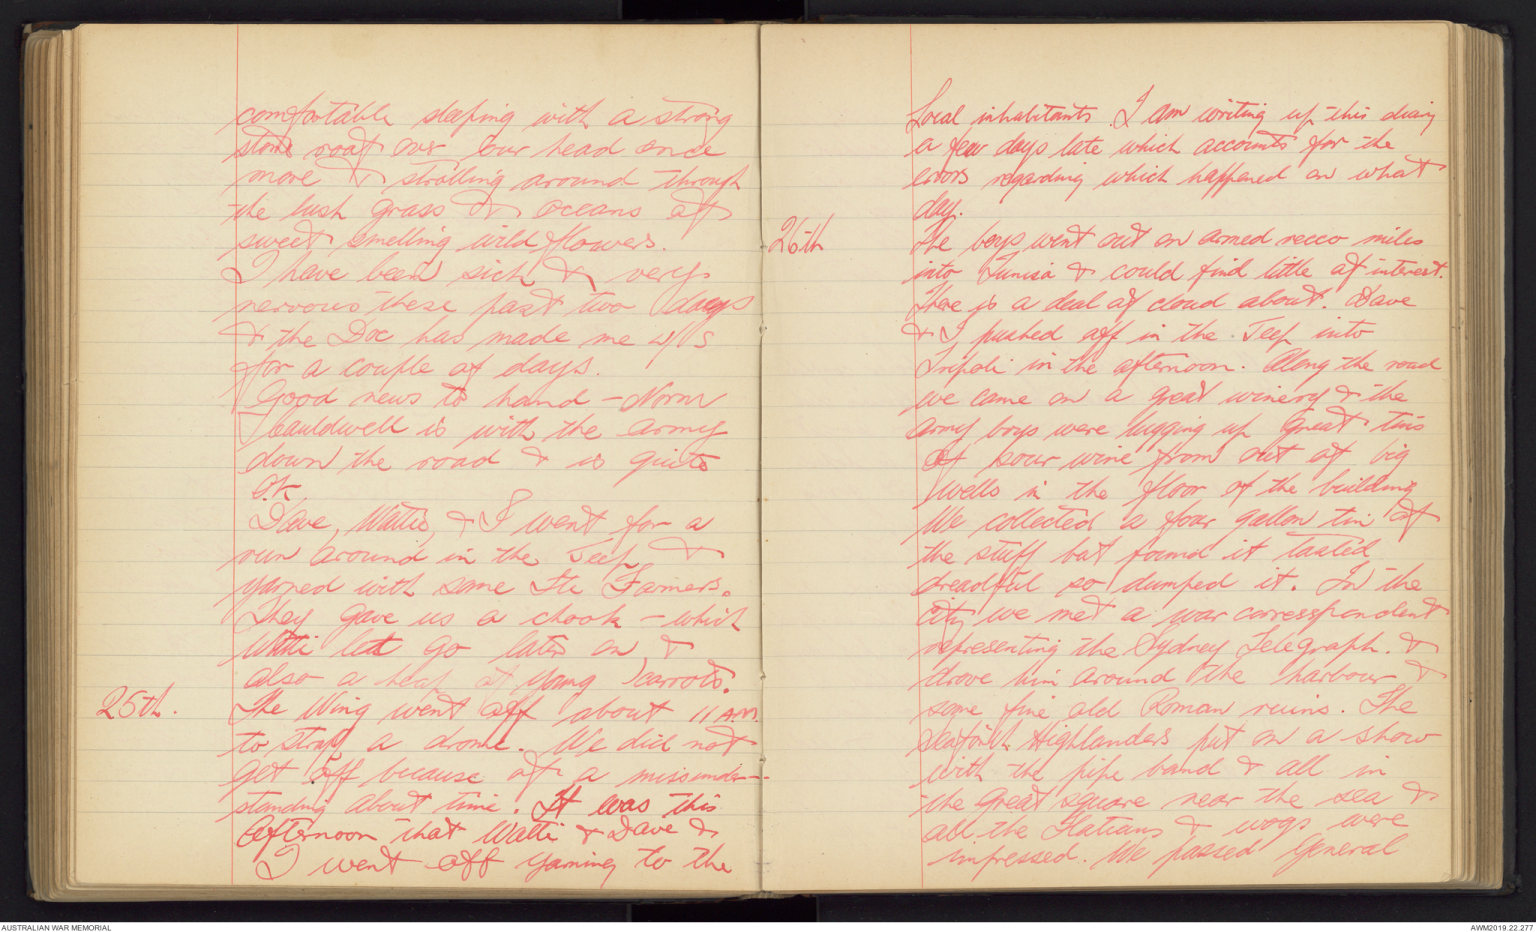 comfortable sleeping with a strong
stone roof over our head once
more & strolling around through
the lush grass & oceans of
sweet smelling wild flowers.
I have been sick & very
nervous these past two days
& the Doc has made me u/s
for a couple of days.
Good news to hand - Norm
Cauldwell is with the army
down the road & is quite
O.K.
Dave, Watti, & I went for a
run around in the Jeep &
yarned with some Ite Farmers.
They gave us a chook - which
Watti let go later on &
also a heap of young carrots.
25th.
The Wing went off about 11 A.M.
to straf a drome. We did not
get off because of a misunder-
standing about time. It was this
afternoon that Watti & Dave &
I went off yarning to the
local inhabitants. I am writing up this diary
a few days late which accounts for the
errors regarding which happened on what
day.
26th
The boys went out on armed recco miles
into Tunisia & could find little of interest.
There is a deal of cloud about. Dave
& I pushed off in the Jeep into
Tripoli in the afternoon. Along the road
we came on a great winery & the
army boys were lugging up great tins
of sour wine from out of big
wells in the floor of the building
We collected a four gallon tin of
the stuff but found it tasted
dreadful so dumped it. In the
city we met a war correspondent
representing the Sydney Telegraph. &
drove him around the harbour &
some fine old Roman ruins. The
Seaforth Highlanders put on a show
with the pipe band & all in
the great square near the sea &
all the Itatians & wogs were
impressed. We passed General
AUSTRALIAN WAR MEMORIAL
AWM2019.22.277